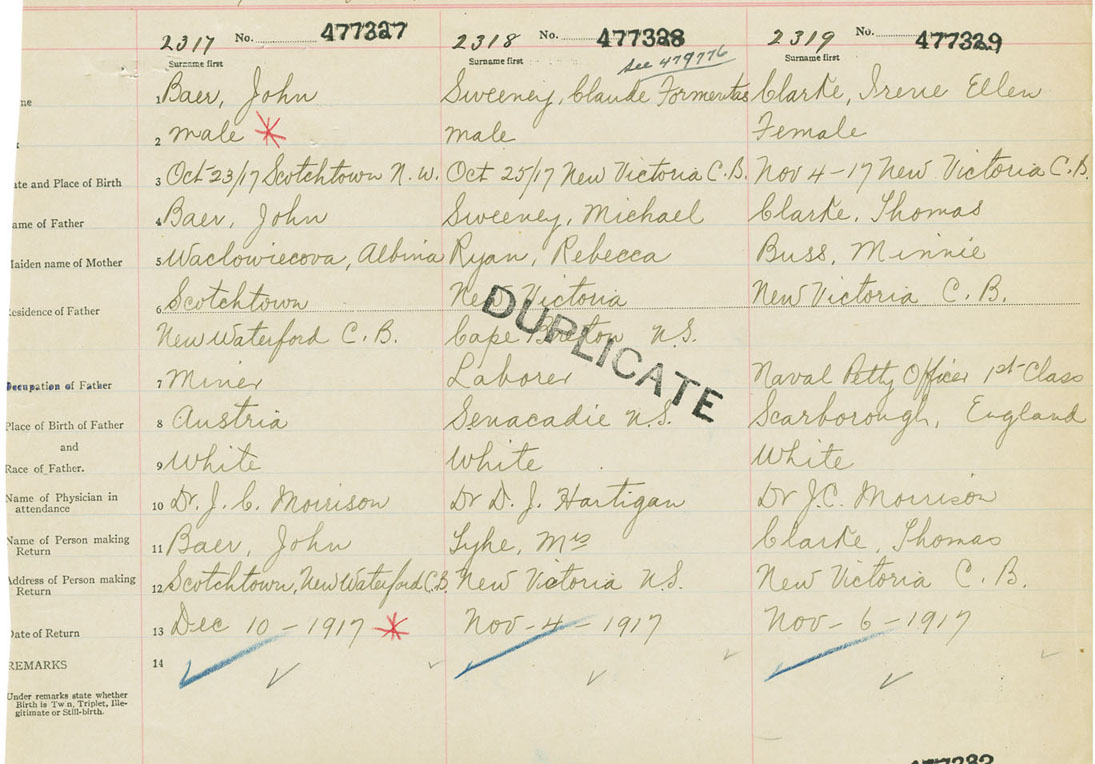 2317 No. 477327 2318 No. 477328 2319 No. 477329
Surname first Surname first See 479776 Surname first
1 Baer, John Sweeney, Claude Clarke, Irene Ellen
2 male male Female
ate and Place of Birth 3 Oct 23/17 Scotchtown N.W. Oct 25/17 New Victoria C.B. Nov 4-17 New Victoria C.B.
ame of Father 4 Baer, John Sweeney, Michael Clarke, Thomas
aiden name of Mother 5 Waclowiecova, Albina Ryan, Rebecca Buss, Minnie
esidence of Father 6 Scotchtown New Victoria New Victoria C.B.
New Waterford C.B. Cape Breton N.S.
DUPLICATE
Occupation of Father 7 Miner Laborer Naval Petty Officer 1st Class
Place of Birth of Father 8 Austria Senacadie N.S. Scarborough, England
and
Race of Father. 9 White White White
Name of Physician in
attendance 10 Dr. J. C. Morrison Dr D. J. Hartigan Dr J.C. Morrison
Name of Person making
Return 11 Baer, John Mrs Clarke, Thomas
Address of Person making
Return 12 Scotchtown, New Waterford C.B. New Victoria N.S. New Victoria C.B.
Date of Return 13 Dec 10-1917 Nov-4-1917 Nov-6-1917
REMARKS 14
Under remarks state whether
Birth is Twin, Triplet, Ille-
gitimate or Still-birth.